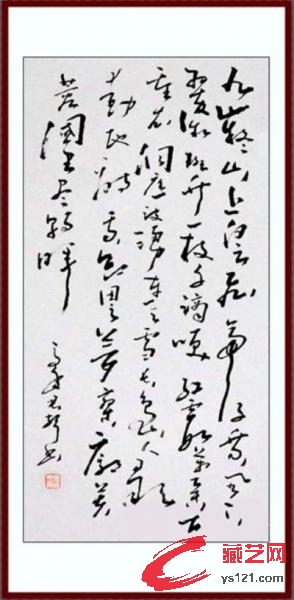 九嶷山上白云飞帝子乘风下
翠微斑竹一枝千滴泪红霞万朵百
重衣洞庭波涌连天雪长岛人歌
动地诗我欲因之梦寥廓芙
蓉国里尽朝晖
书
藏艺网
ys121.com